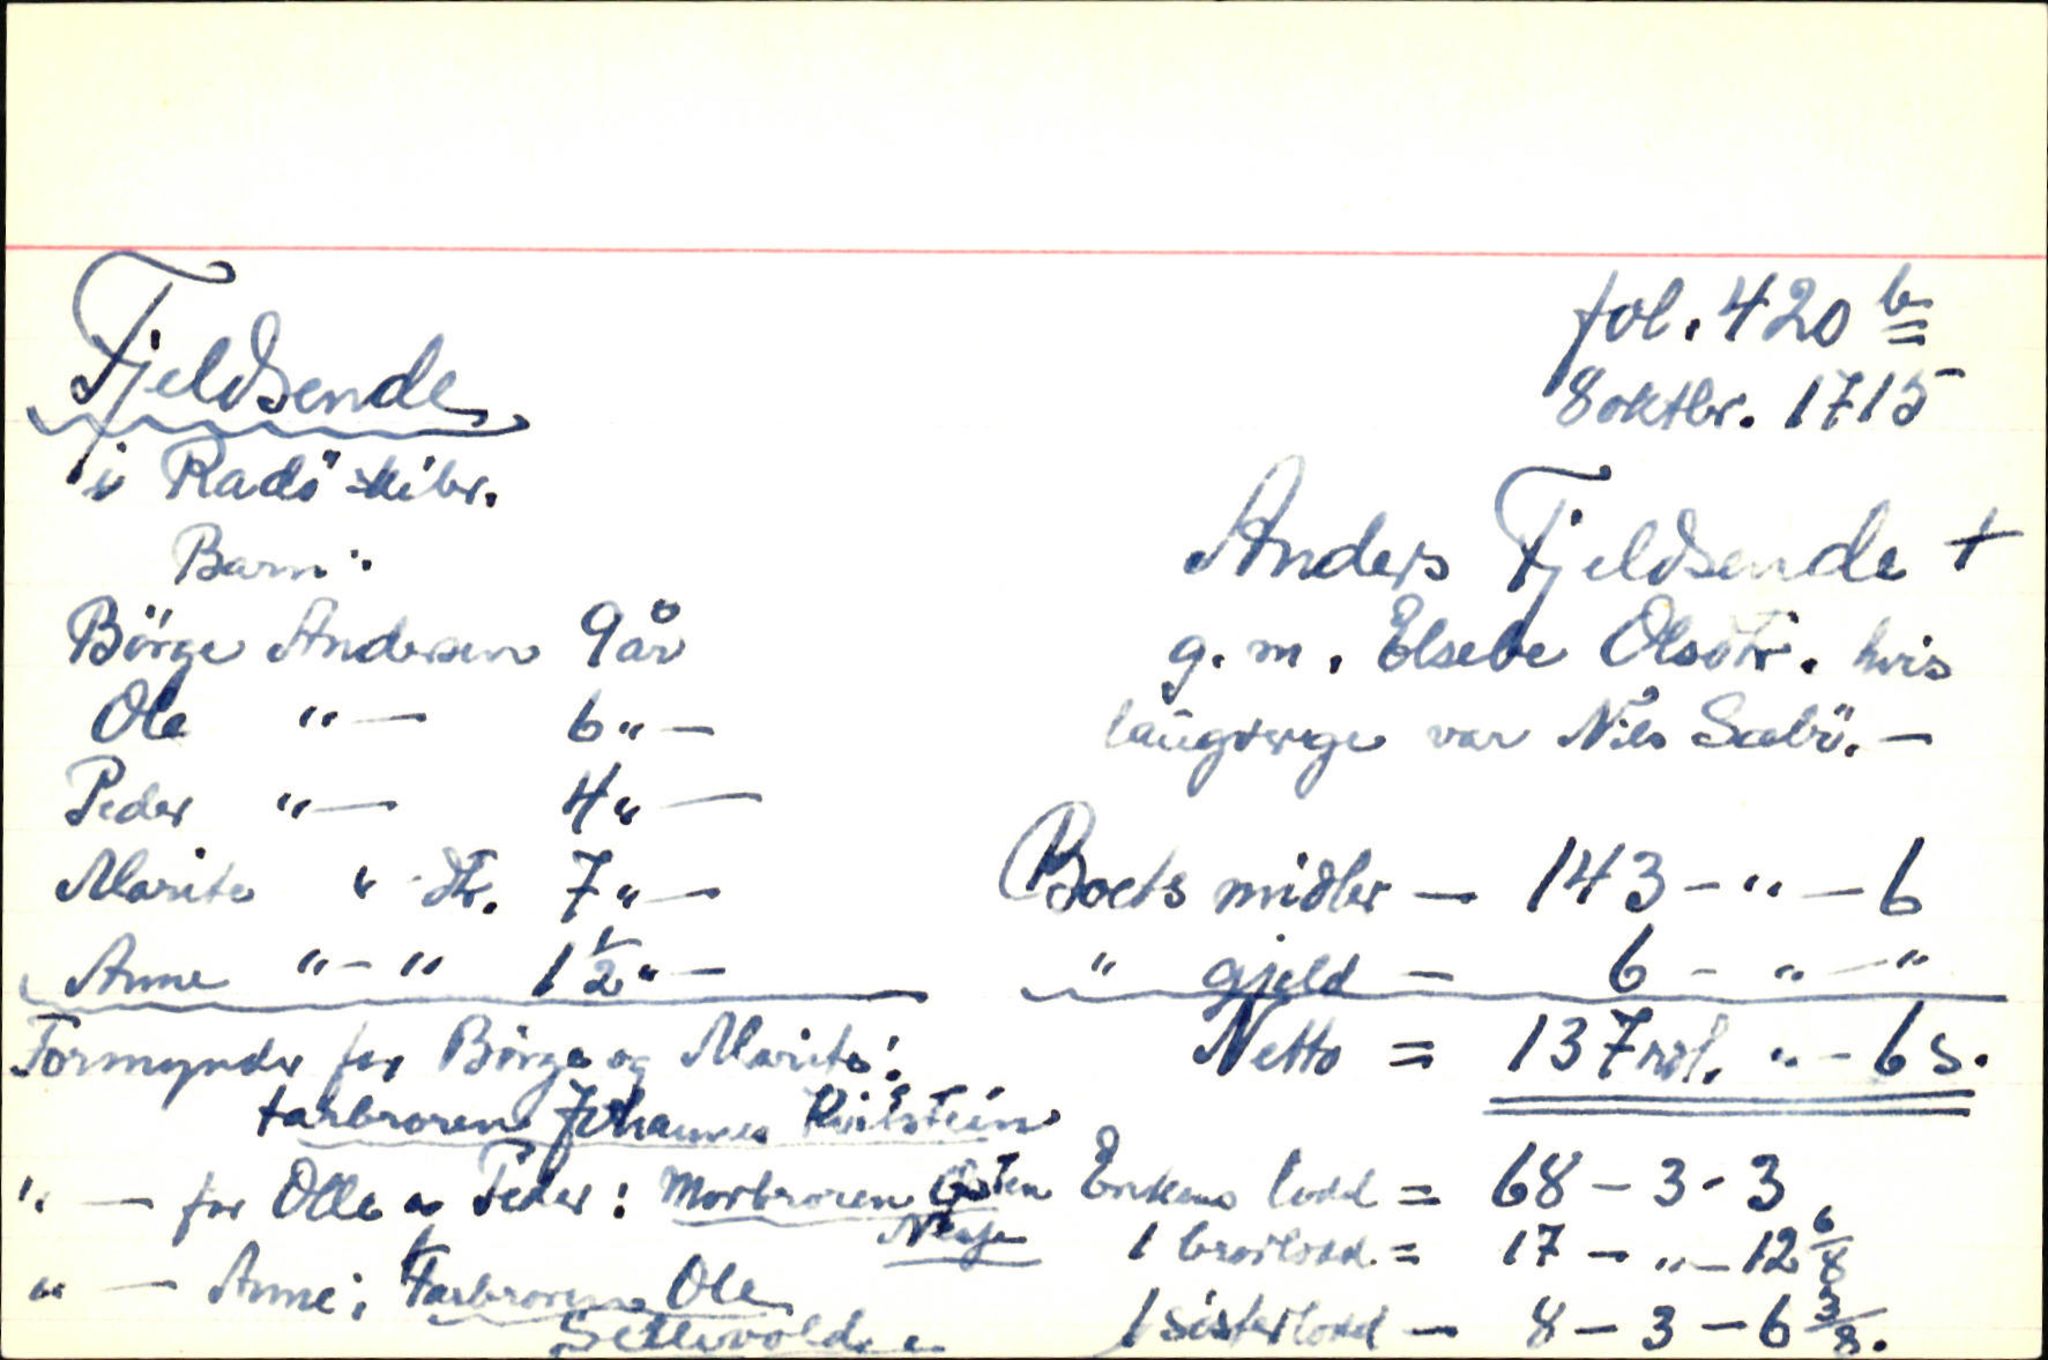 Fjeldsende
i Radö skibr.
Barn:
Börge Andersen 9 år
Ole "— 6 " —
Peder "— 4 " —
Marite " dtr. 7 " —
Anne " – " 1 1/2 " —
Formynder for Börge og Marite:
farbroren Johannes
" — for Olle og Peder: Morbroren Gusten
" — Anne: Farbroren Ole
fol. 420 b
8 oktbr. 1715
Anders Fjeldsende †
g. m. Elsebe Olsdtr. hvis
laugverge var Nils Sæbö. —
Boets midler — 143 – " – 6
" gjeld = 6 – " – "
Netto = 137 rdl. " – 6 s.
Enkens lodd = 68 – 3 - 3
1 brorlodd = 17 – " – 12 6/8
1 sösterlodd — 8 – 3 – 6 3/8.